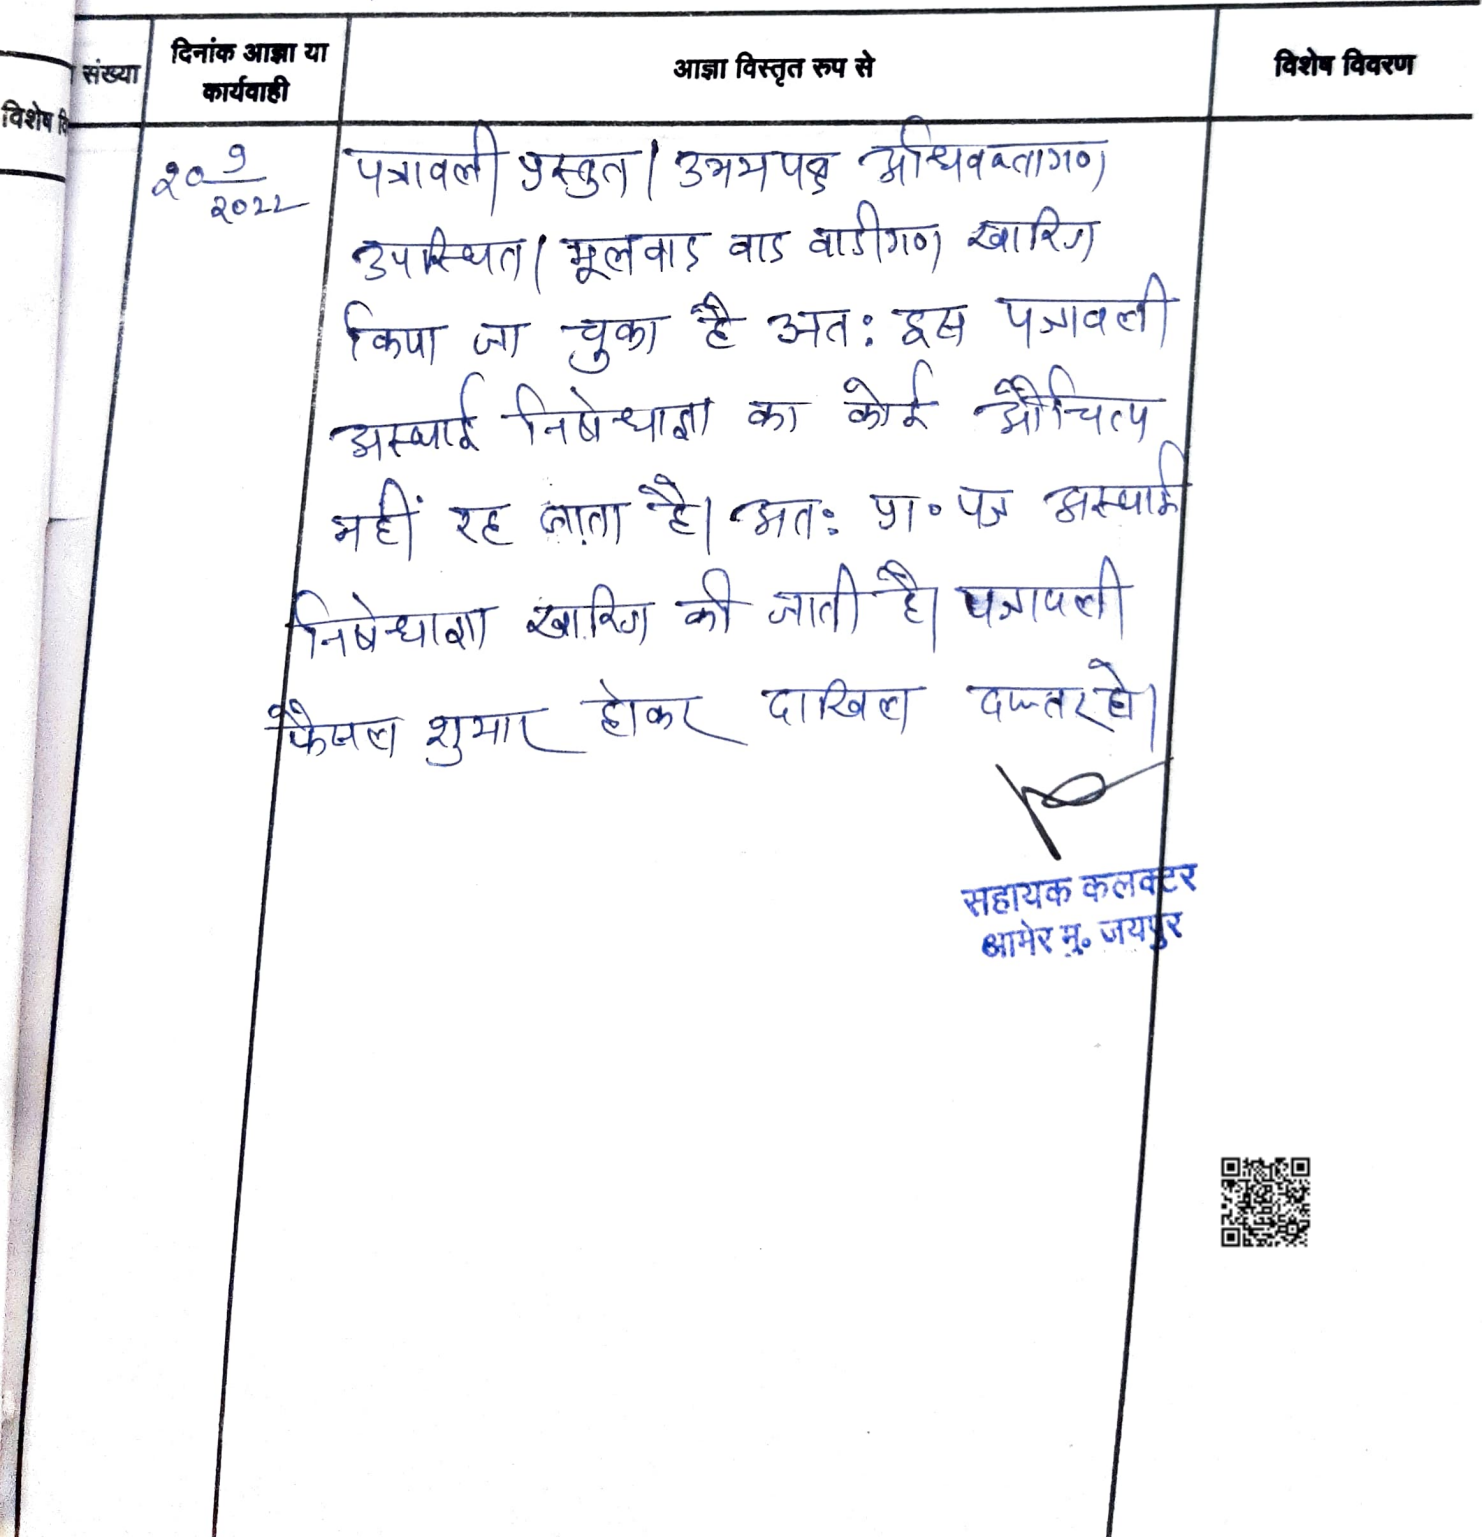 संख्या
दिनांक आज्ञा या
कार्यवाही
आज्ञा विस्तृत रुप से
विशेष विवरण
विशेष वि
२० 9
२०२२
पत्रावली प्रस्तुत। उभयपक्ष अधिवक्तागण
उपस्थित। मूलवाद वाद वादीगण खारिज
किया जा चुका है अत: इस पत्रावली
अस्थाई निषेधाज्ञा का कोई औचित्य
नहीं रह जाता है। अत: प्रा॰ पत्र अस्थाई
निषेधाज्ञा खारिज की जाती है। पत्रावली
फैसल शुमार होकर दाखिल दफ्तर हो।
सहायक कलक्टर
आमेर मु॰ जयपुर